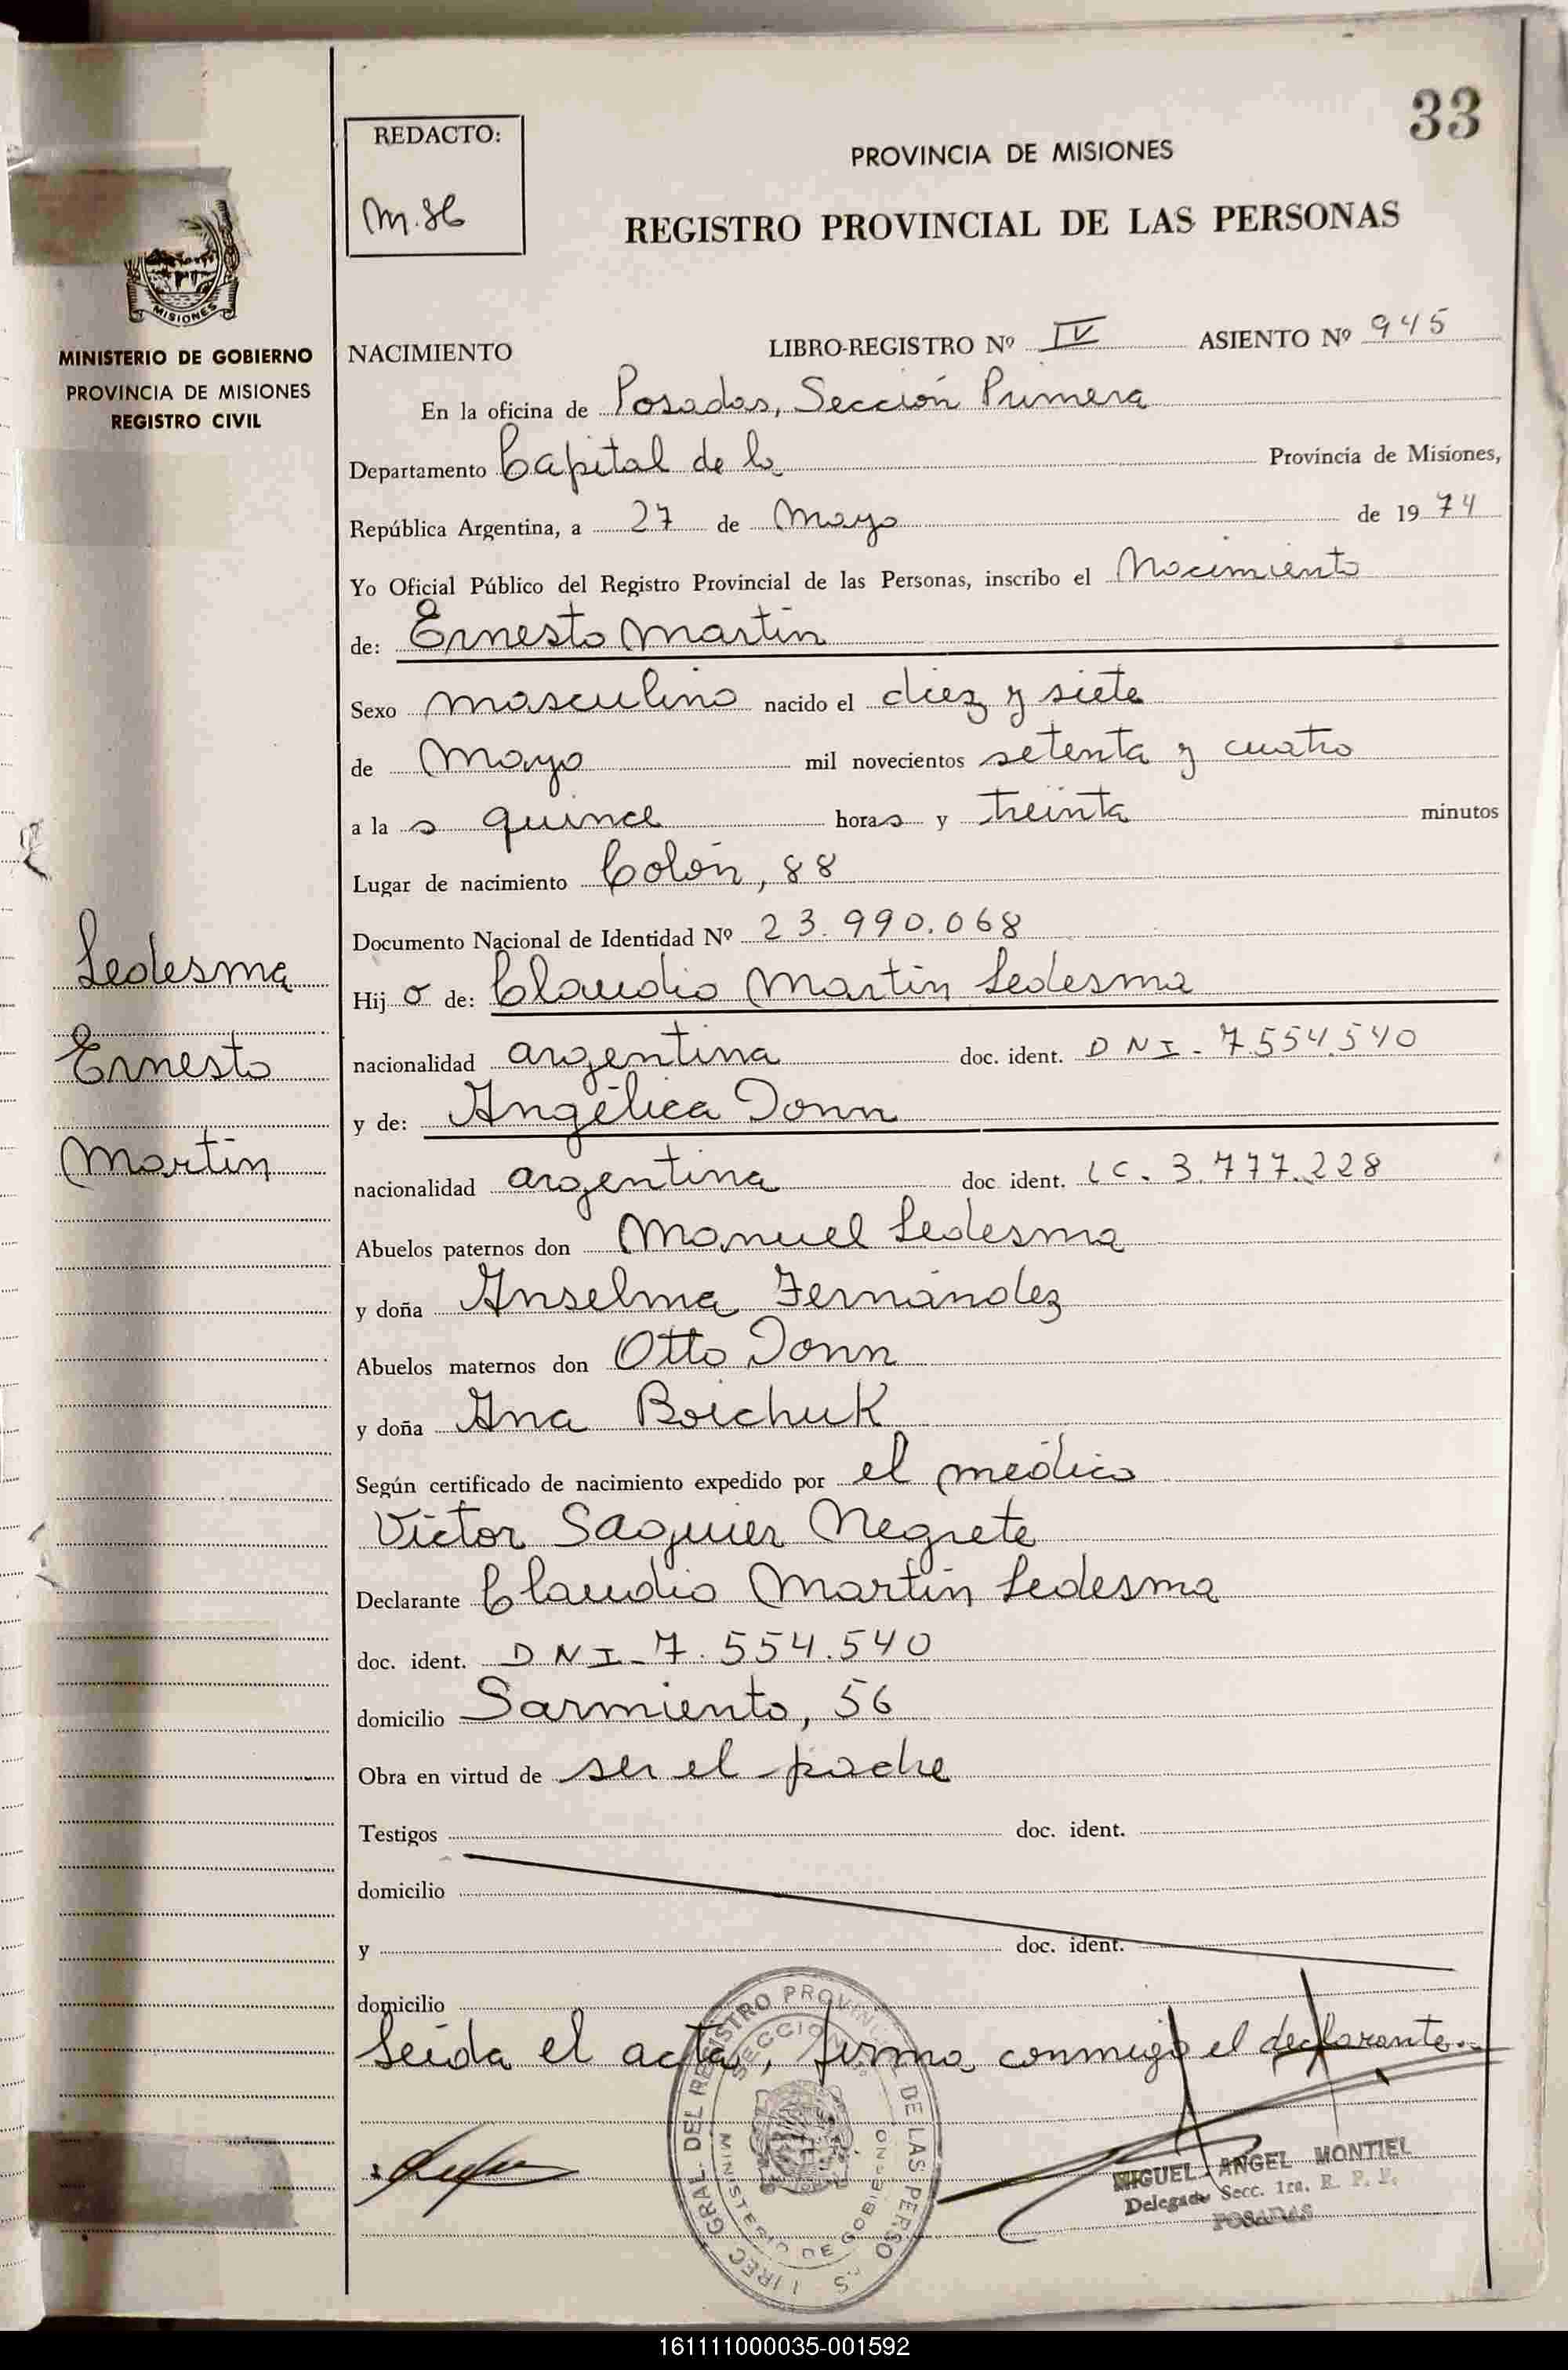 33
REDACTO:
PROVINCIA DE MISIONES
REGISTRO PROVINCIAL DE LAS PERSONAS
MISIONES
MINISTERIO DE GOBIERNO
PROVINCIA DE MISIONES
REGISTRO CIVIL
NACIMIENTO LIBRO-REGISTRO Nº IV ASIENTO Nº 945
En la oficina de Posadas, Sección Primera
Departamento Capital de la Provincia de Misiones,
República Argentina, a 27 de Mayo de 1974
Yo Oficial Público del Registro Provincial de las Personas, inscribo el Nacimiento
de: Ernesto Martín
Sexo masculino nacido el diez y siete
de Mayo mil novecientos setenta y cuatro
a las quince horas y treinta minutos
Lugar de nacimiento Colón, 88
Documento Nacional de Identidad Nº 23.990.068
Ledesma
Hijo de: Claudio Martín Ledesma
Ernesto
nacionalidad argentina doc. ident. DNI- 7.554.540
y de: Angélica Donn
Martín
nacionalidad argentina doc ident. LC. 3.777.228
Abuelos paternos don Manuel Ledesma
y doña Anselma Fernández
Abuelos maternos don Otto Donn
y doña Ana Boichuk
Según certificado de nacimiento expedido por el médico
Víctor Saguier Negrete
Declarante Claudio Martín Ledesma
doc. ident. DNI- 7.554.540
domicilio Sarmiento, 56
Obra en virtud de ser el padre
Testigos doc. ident.
domicilio
y doc. ident.
domicilio
Leída el acta, firma conmigo el declarante.
MIGUEL ANGEL MONTIEL
Delegado Secc. 1ra. R. P. P.
POSADAS
161111000035-001592